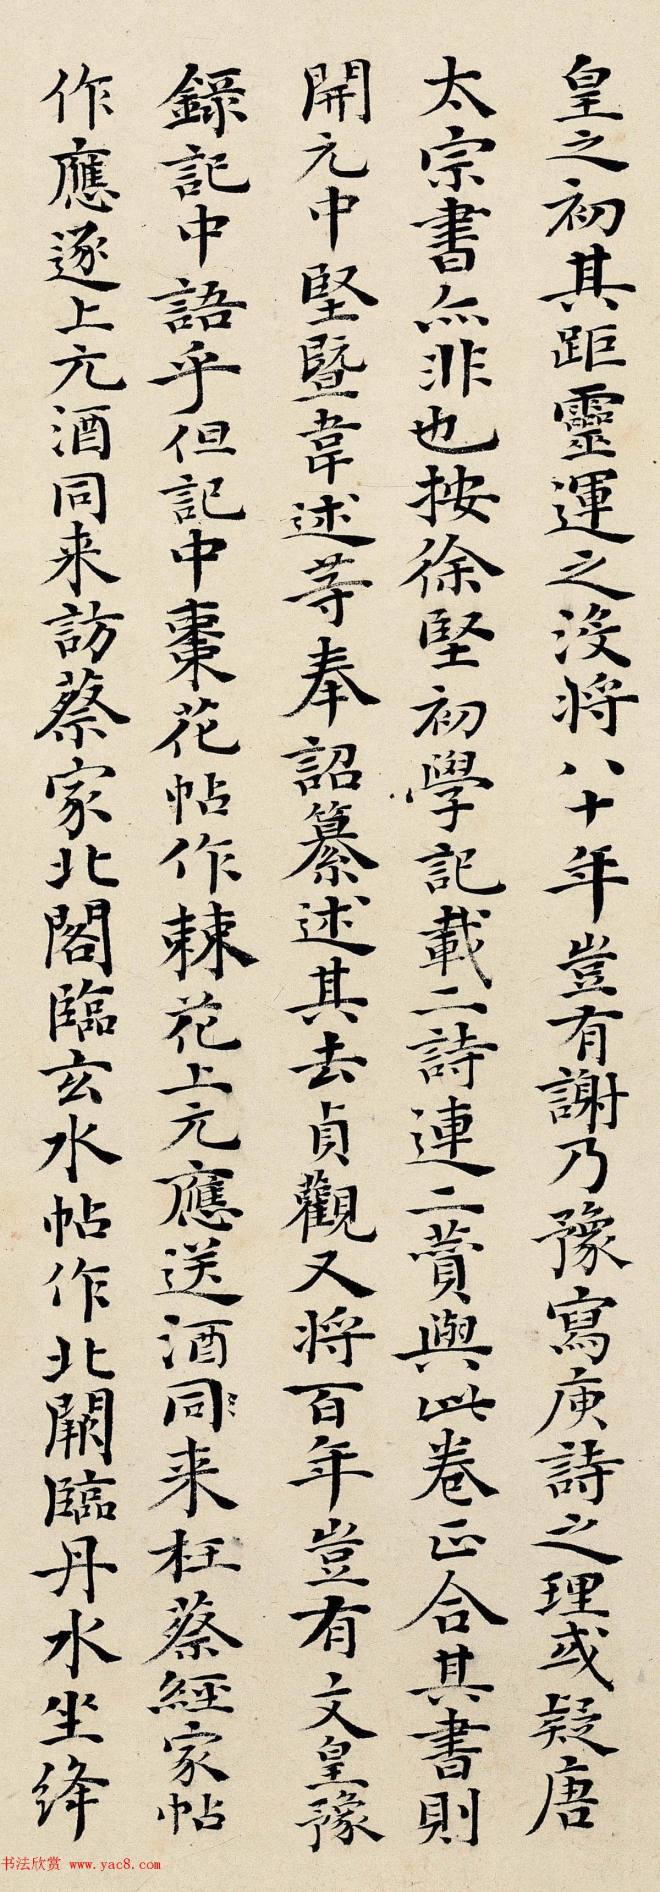 皇之初其距靈運之沒將八十年豈有謝乃豫寫庾詩之理或疑唐
太宗書亦非也按徐堅初學記載二詩連二賛與此卷正合其書則
開元中堅暨韋述等奉詔纂述其去貞觀又將百年豈有文皇豫
錄記中語乎但記中棗花帖作棘花上元應送酒同来枉蔡經家帖
作應逐上元酒同来訪蔡家北閣臨玄水帖作北闕臨丹水坐絳
书法欣赏 www.yac8.com